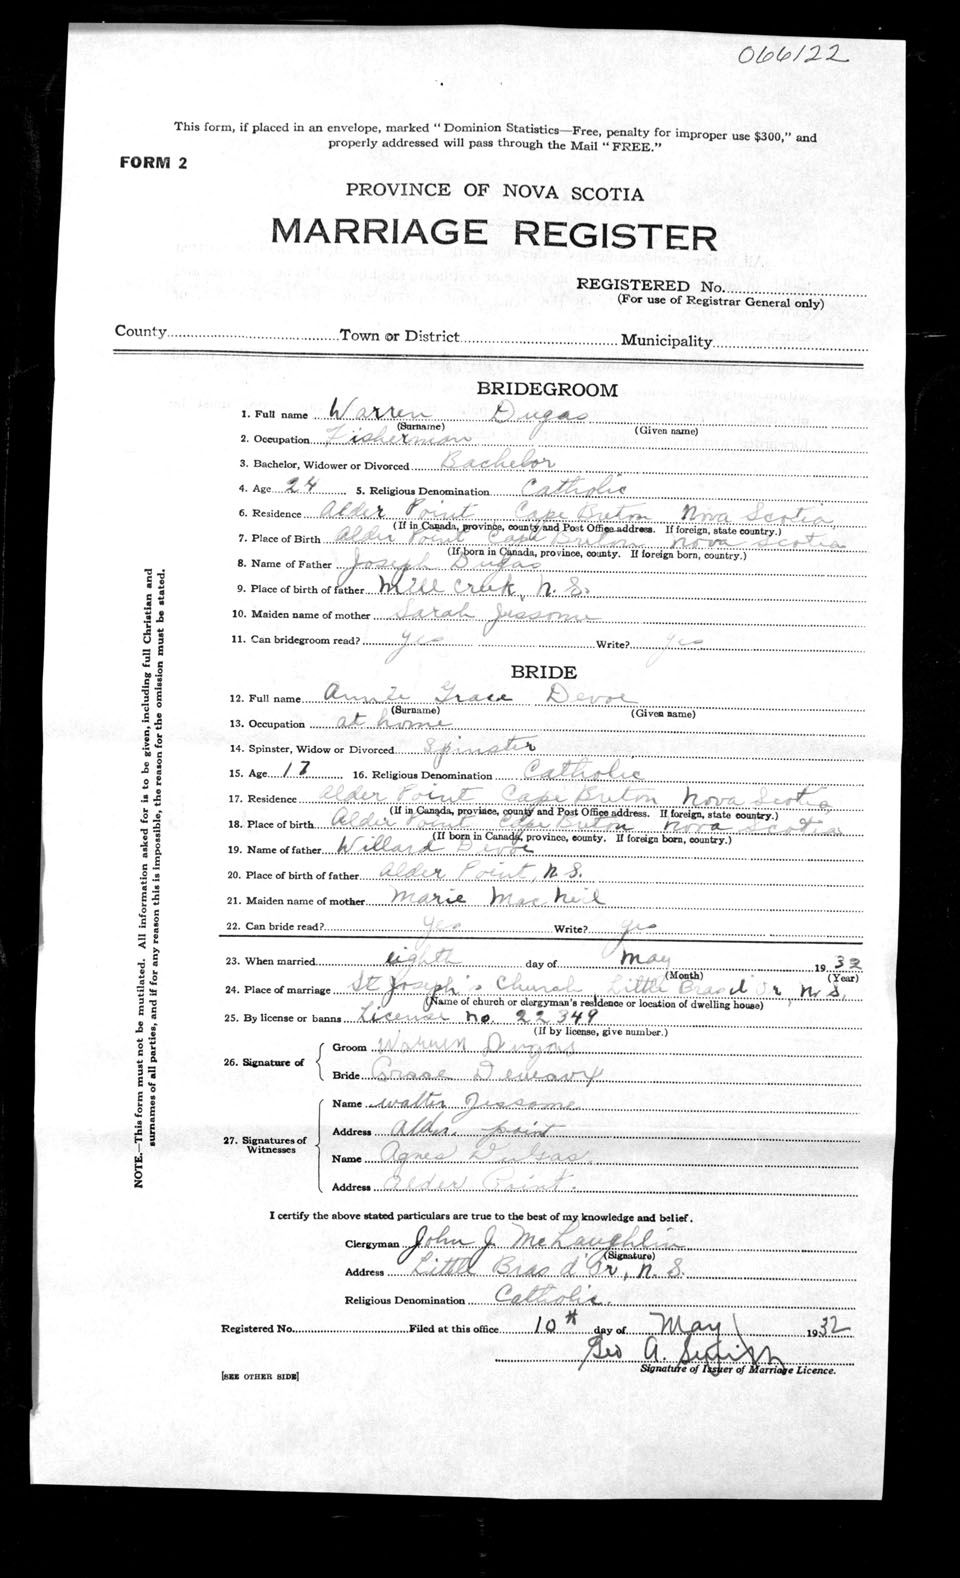 066122
This form, if placed in an envelope, marked "Dominion Statistics—Free, penalty for improper use $300," and
properly addressed will pass through the Mail "FREE."
FORM 2
PROVINCE OF NOVA SCOTIA
MARRIAGE REGISTER
REGISTERED No.
(For use of Registrar General only)
County Town or District Municipality
BRIDEGROOM
1. Full name Warren Dugas
(Surname) (Given name)
2. Occupation Fisherman
3. Bachelor, Widower or Divorced Bachelor
4. Age 24 5. Religious Denomination Catholic
6. Residence Alder Point Cape Breton Nova Scotia
(If in Canada, province, county and Post Office address. If foreign, state country.)
7. Place of Birth Alder Point Cape Breton Nova Scotia
(If born in Canada, province, county. If foreign born, country.)
8. Name of Father Joseph Dugas
9. Place of birth of father Mill Creek, N. S.
10. Maiden name of mother Sarah Jessome
11. Can bridegroom read? yes Write? yes
BRIDE
12. Full name Annie Grace Devoe
(Surname) (Given name)
13. Occupation at home
14. Spinster, Widow or Divorced Spinster
15. Age 17 16. Religious Denomination Catholic
17. Residence Alder Point Cape Breton Nova Scotia
(If in Canada, province, county and Post Office address. If foreign, state country.)
18. Place of birth Alder Point Cape Breton Nova Scotia
(If born in Canada, province, county. If foreign born, country.)
19. Name of father Willard Devoe
20. Place of birth of father Alder Point, N. S.
21. Maiden name of mother Marie MacNeil
22. Can bride read? yes Write? yes
23. When married eighth day of May 1932
(Month) (Year)
24. Place of marriage St Joseph's Church Little Bras d'Or, N. S.
(Name of church or clergyman's residence or location of dwelling house)
25. By license or banns License no. 22349
(If by license, give number.)
26. Signature of
Groom Warren
Bride Grace
27. Signatures of Witnesses
Name Walter Jessome
Address Alder point
Name Agnes DuGas
Address Alder Point.
I certify the above stated particulars are true to the best of my knowledge and belief.
Clergyman John J. McLaughlin
(Signature)
Address Little Bras d'Or, N. S.
Religious Denomination Catholic.
Registered No. Filed at this office 10th day of May 1932
Geo A.
Signature of Issuer of Marriage Licence.
[SEE OTHER SIDE]
NOTE.—This form must not be mutilated. All information asked for is to be given, including full Christian and
surnames of all parties, and if for any reason this is impossible, the reason for the omission must be stated.